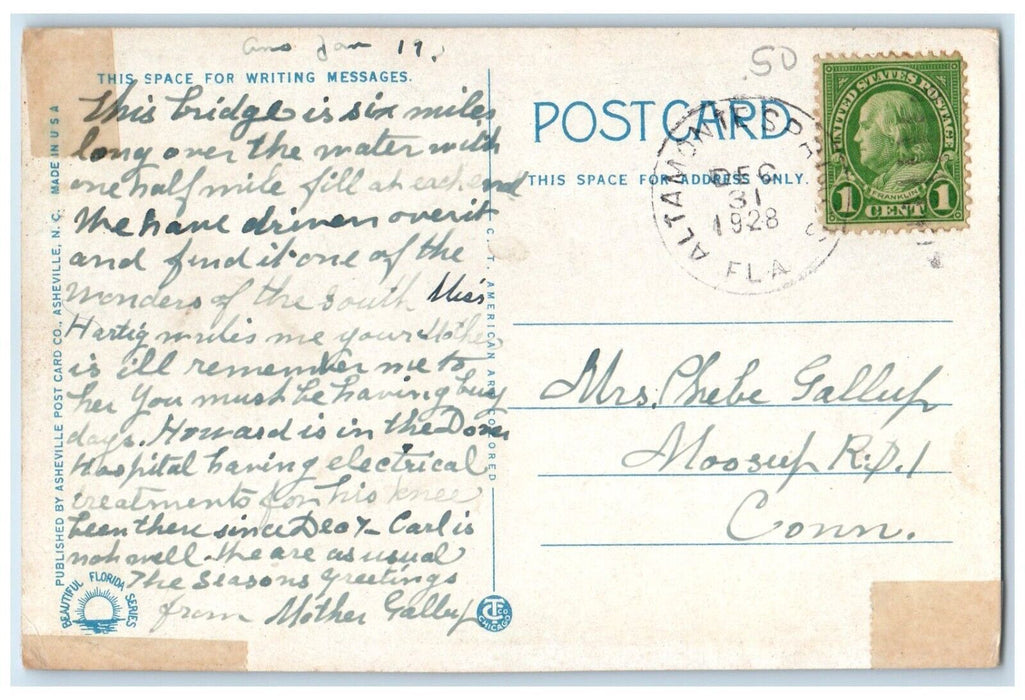 ans Jan 19.
.50
THIS SPACE FOR WRITING MESSAGES.
This bridge is six miles
long over the water with
one half mile fill at each end
We have driven over it
and find it one of the
wonders of the South Miss
Hartig writes me your Mother
is ill remember me to
her You must be having busy
days. Howard is in the Dover
Hospital having electrical
treatments for his knee
been there since Dec 7 - Carl is
not well. We are as usual
The Seasons Greetings
from Mother Gallup
POST CARD
THIS SPACE FOR ADDRESS ONLY.
ALTAMONTE SPRINGS
DEC
31
1928
FLA
UNITED STATES POSTAGE
FRANKLIN
1 CENT 1
Mrs. Phebe Gallup
Moosup R.D.1
Conn.
PUBLISHED BY ASHEVILLE POST CARD CO., ASHEVILLE, N. C. MADE IN U S A
C. T. AMERICAN ART COLORED
BEAUTIFUL FLORIDA SERIES
CT CO CHICAGO